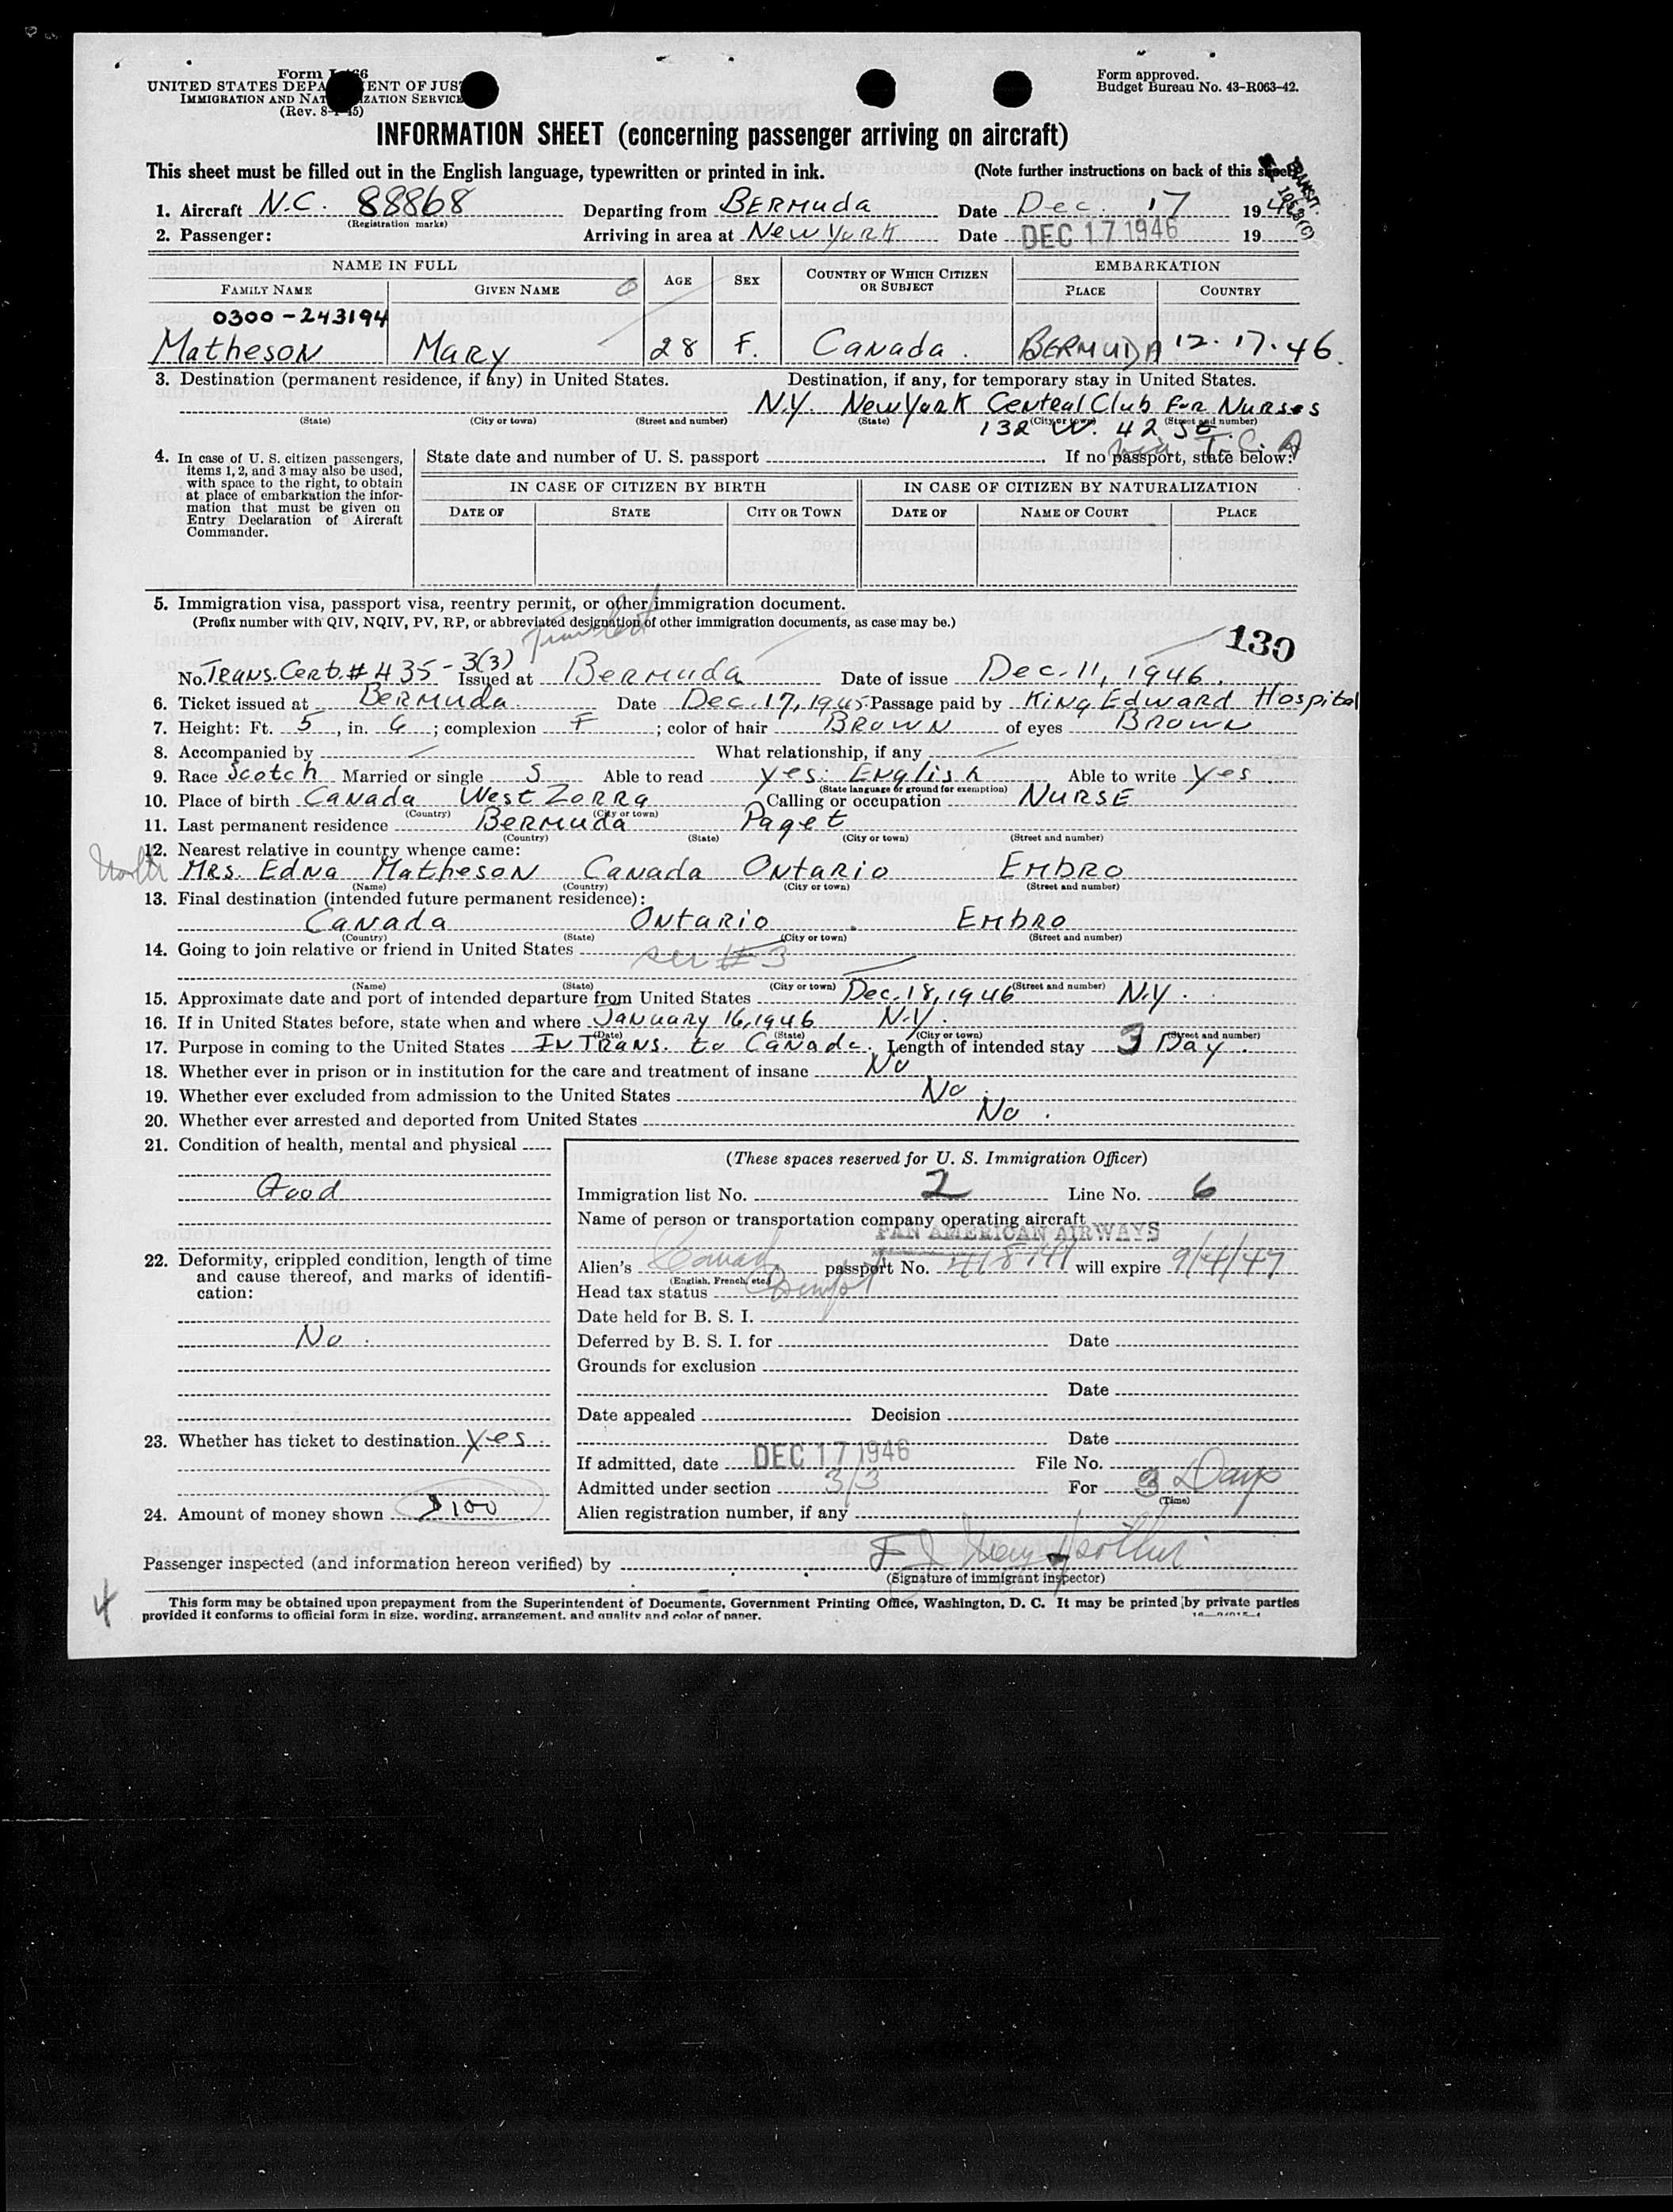 Form I-466
UNITED STATES DEPARTMENT OF JUSTICE
IMMIGRATION AND NATURALIZATION SERVICE
(Rev. 8-1-45)
Form approved.
Budget Bureau No. 43-R063-42.
INFORMATION SHEET (concerning passenger arriving on aircraft)
This sheet must be filled out in the English language, typewritten or printed in ink. (Note further instructions on back of this sheet)
TRANSIT.
1. Aircraft N.C. 88868 Departing from BERMUDA Date Dec. 17 1946
(Registration marks)
2. Passenger: Arriving in area at New York Date DEC 17 1946 19
NAME IN FULL AGE SEX COUNTRY OF WHICH CITIZEN OR SUBJECT EMBARKATION
FAMILY NAME GIVEN NAME PLACE COUNTRY
0300-243194
Matheson Mary 28 F. Canada. BERMUDA 12.17.46.
3. Destination (permanent residence, if any) in United States. Destination, if any, for temporary stay in United States.
N.Y. New York Central Club For Nurses
(State) (City or town) (Street and number) (State) (City or town) (Street and number)
132 W. 42 St.
via T.C.A
4. In case of U. S. citizen passengers, items 1, 2, and 3 may also be used, with space to the right, to obtain at place of embarkation the information that must be given on Entry Declaration of Aircraft Commander.
State date and number of U. S. passport If no passport, state below:
IN CASE OF CITIZEN BY BIRTH IN CASE OF CITIZEN BY NATURALIZATION
DATE OF STATE CITY OR TOWN DATE OF NAME OF COURT PLACE
5. Immigration visa, passport visa, reentry permit, or other immigration document.
(Prefix number with QIV, NQIV, PV, RP, or abbreviated designation of other immigration documents, as case may be.)
130
No. Trans. Cert. # 435-3(3) Issued at Bermuda Date of issue Dec. 11, 1946.
6. Ticket issued at Bermuda. Date Dec. 17, 1945. Passage paid by King Edward Hospital
7. Height: Ft. 5, in. 6; complexion F; color of hair BROWN of eyes BROWN
8. Accompanied by What relationship, if any
9. Race Scotch Married or single S Able to read Yes: English Able to write Yes.
(State language or ground for exemption)
10. Place of birth Canada West Zorra Calling or occupation NURSE
(Country) (City or town)
11. Last permanent residence Bermuda Paget
(Country) (State) (City or town) (Street and number)
12. Nearest relative in country whence came:
Mrs. Edna Matheson Canada Ontario Embro
(Name) (Country) (City or town) (Street and number)
13. Final destination (intended future permanent residence):
Canada Ontario. Embro
(Country) (State) (City or town) (Street and number)
14. Going to join relative or friend in United States see #3
(Name) (State) (City or town) (Street and number)
15. Approximate date and port of intended departure from United States Dec. 18, 1946 N.Y.
16. If in United States before, state when and where January 16, 1946 N.Y.
(Date) (State) (City or town) (Street and number)
17. Purpose in coming to the United States In Trans. to Canada. Length of intended stay 3 Day.
18. Whether ever in prison or in institution for the care and treatment of insane No
19. Whether ever excluded from admission to the United States No.
20. Whether ever arrested and deported from United States No.
21. Condition of health, mental and physical
Good
22. Deformity, crippled condition, length of time and cause thereof, and marks of identification:
No.
23. Whether has ticket to destination Yes.
24. Amount of money shown $100
(These spaces reserved for U. S. Immigration Officer)
Immigration list No. 2 Line No. 6
Name of person or transportation company operating aircraft
PAN AMERICAN AIRWAYS
Alien's Canad passport No. will expire 9/4/47
(English, French, etc.)
Head tax status Exempt
Date held for B. S. I.
Deferred by B. S. I. for Date
Grounds for exclusion
Date
Date appealed Decision
Date
If admitted, date DEC 17 1946 File No.
Admitted under section 3/3 For 3 Days
(Time)
Alien registration number, if any
Passenger inspected (and information hereon verified) by
(Signature of immigrant inspector)
4
This form may be obtained upon prepayment from the Superintendent of Documents, Government Printing Office, Washington, D. C. It may be printed by private parties
provided it conforms to official form in size, wording, arrangement, and quality and color of paper.